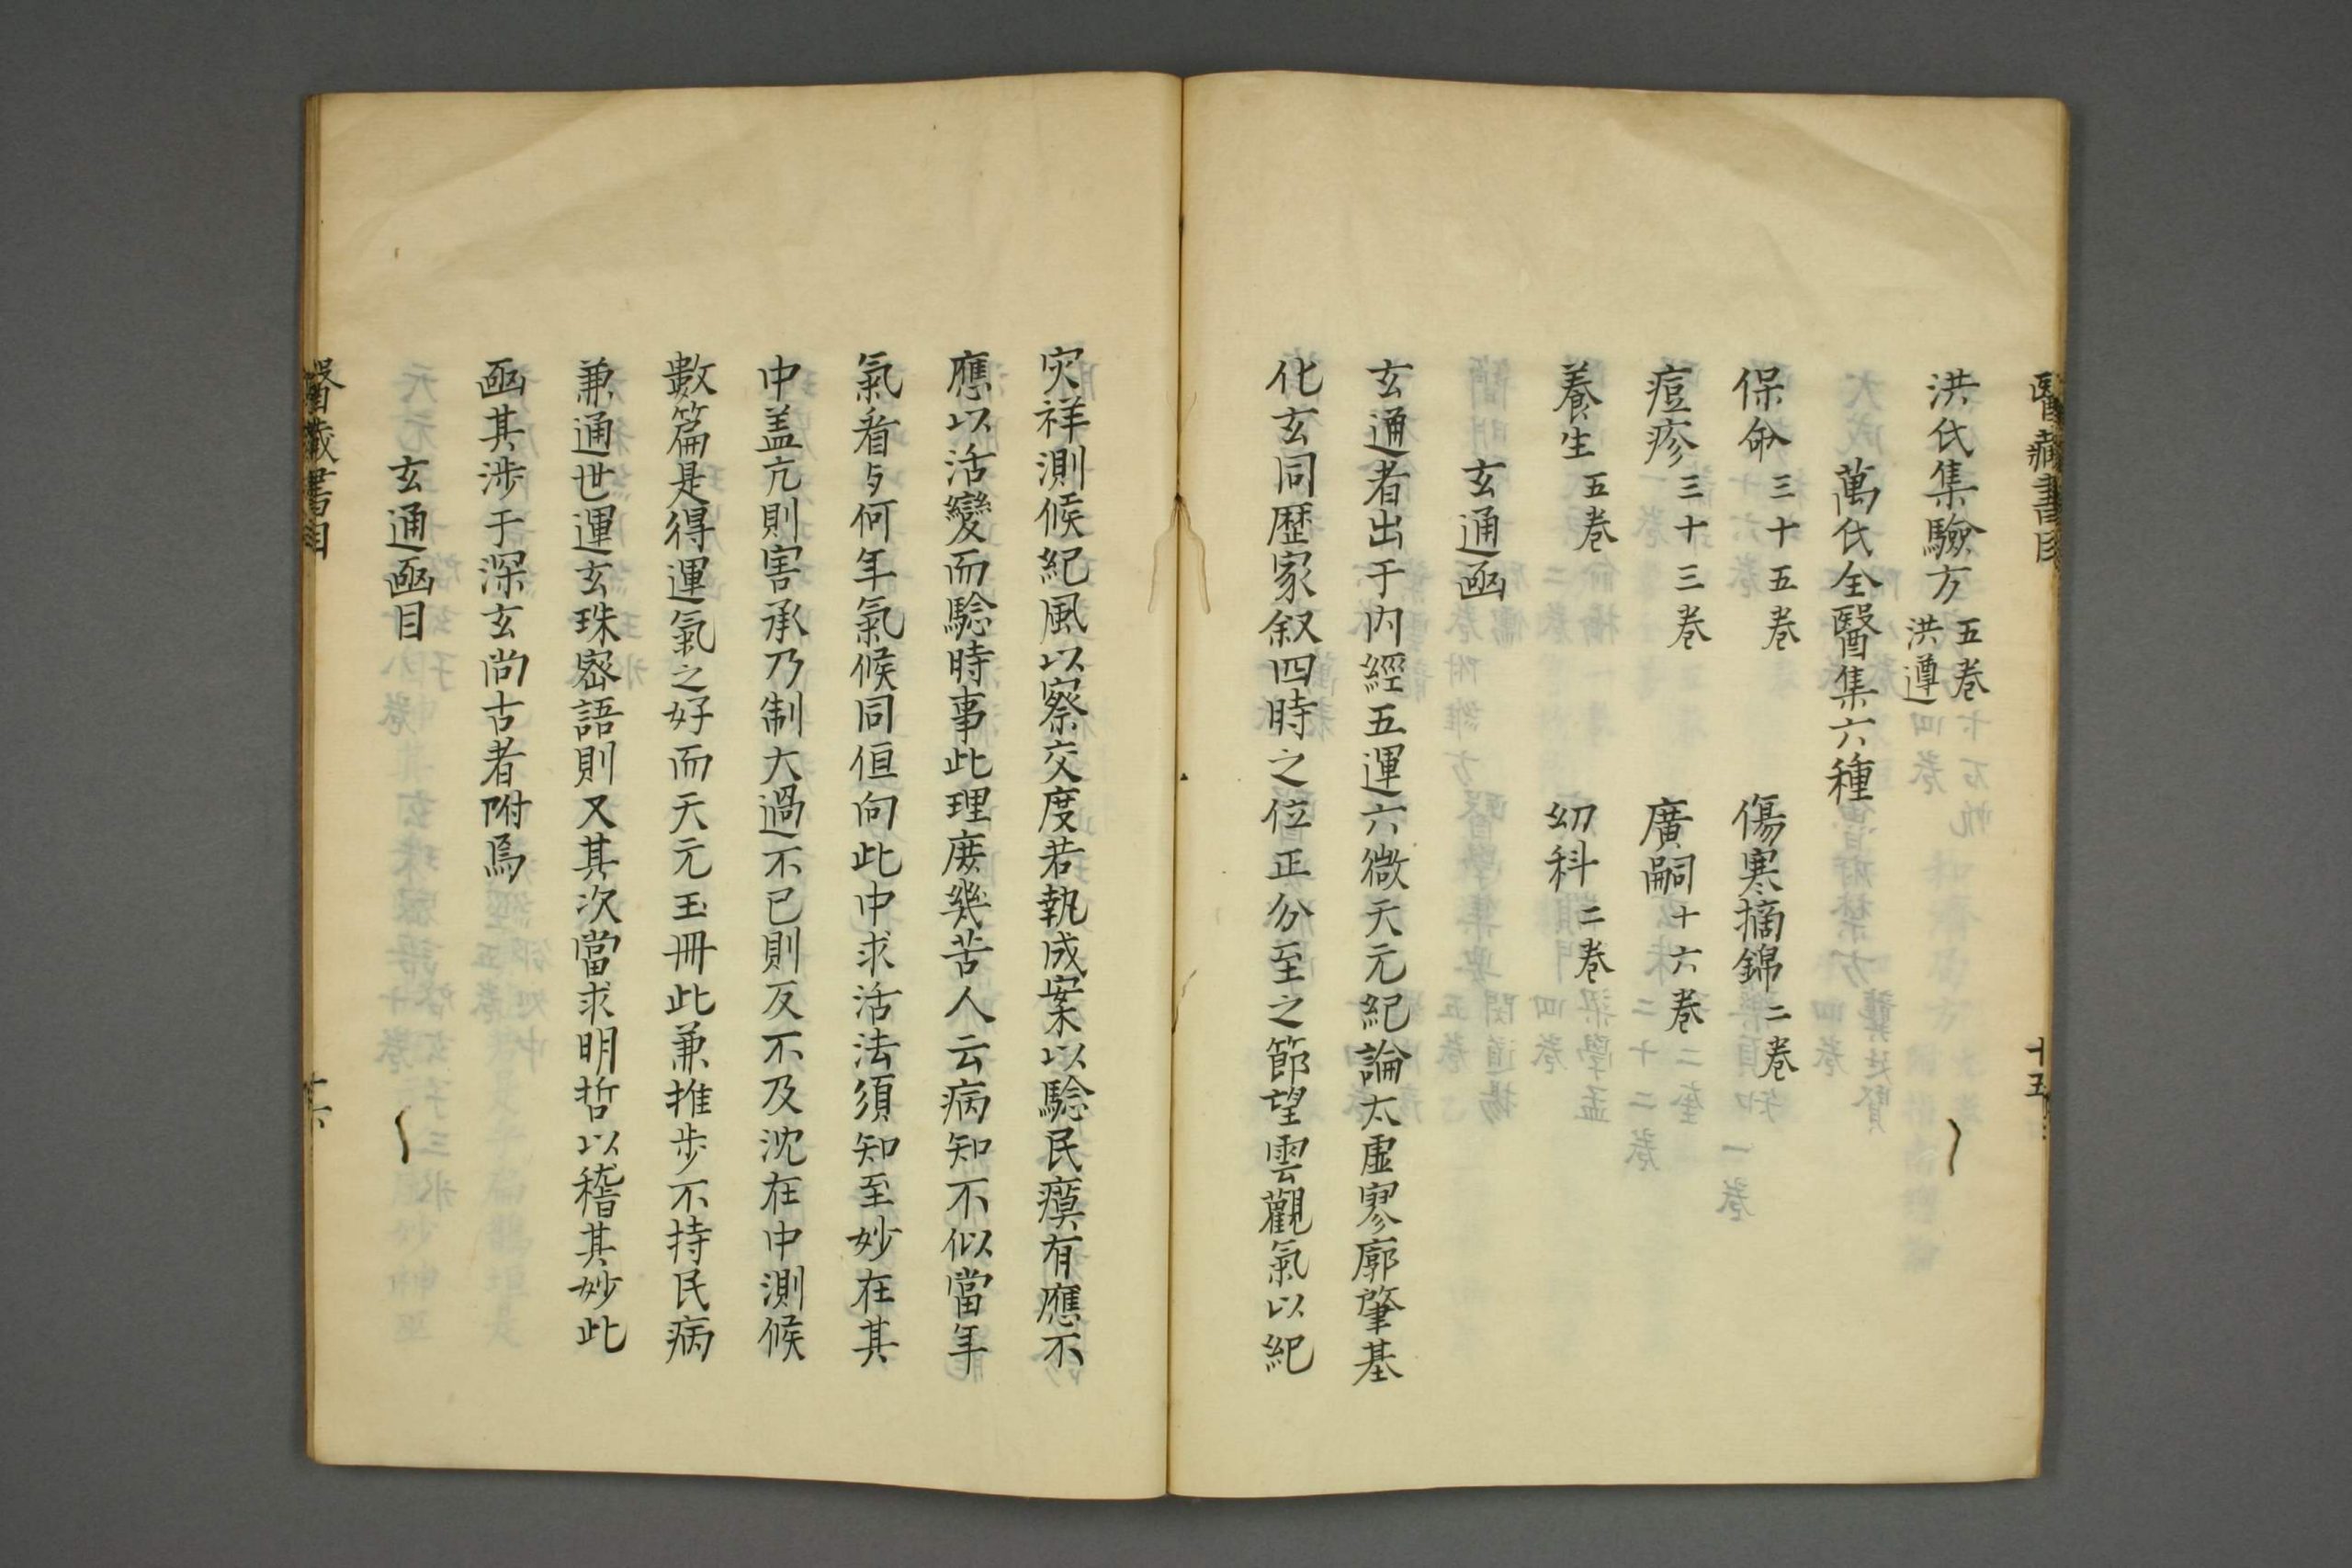 醫藏書目 十五
洪氏集驗方 五卷 洪遵
萬氏全醫集六種
保命 三十五卷 傷寒摘錦 二卷
痘疹 三十三卷 廣嗣 十六卷
養生 五卷 幼科 二卷
玄通函
玄通者出于内經五運六微天元紀論太虛寥廓肇基
化玄同歷家叙四時之位正分至之節望雲觀氣以紀
灾祥測候紀風以察交度若執成案以騐民瘼有應不
應以活變而騐時事此理庻幾苦人云病知不似當年
氣看与何年氣候同但向此中求活法須知至妙在其
中盖亢則害承乃制大過不已則反不及沈在中測候
數篇是得運氣之好而天元玉冊此兼推步不持民病
兼通世運玄珠密語則又其次當求明哲以稽其妙此
函其涉于深玄尚古者附焉
玄通函目
醫藏書目